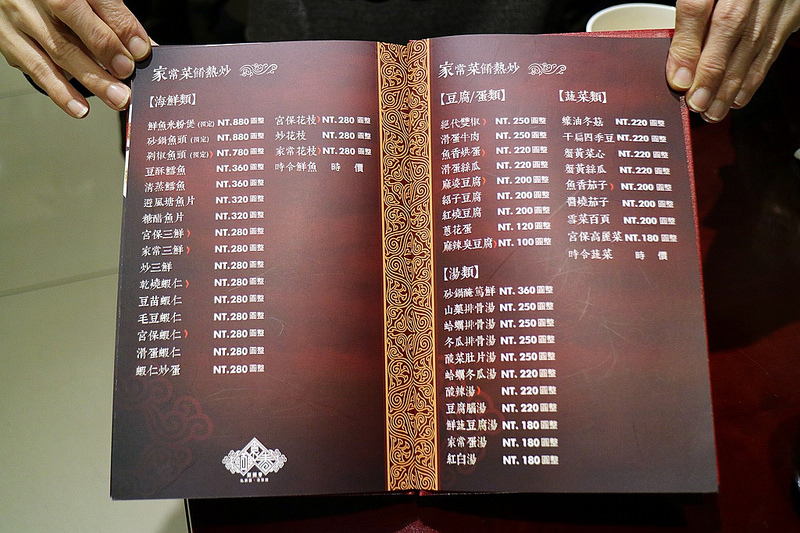 家常菜餚熱炒
【海鮮類】
鮮魚米粉煲(預定) NT.880圓整
砂鍋魚頭(預定) NT.880圓整
剁椒魚頭(預定) NT.780圓整
豆酥鱈魚 NT.360圓整
清蒸鱈魚 NT.360圓整
避風塘魚片 NT.320圓整
糖醋魚片 NT.320圓整
宮保三鮮 NT.280圓整
家常三鮮 NT.280圓整
炒三鮮 NT.280圓整
乾燒蝦仁 NT.280圓整
豆苗蝦仁 NT.280圓整
毛豆蝦仁 NT.280圓整
宮保蝦仁 NT.280圓整
滑蛋蝦仁 NT.280圓整
蝦仁炒蛋 NT.280圓整
宮保花枝 NT.280圓整
炒花枝 NT.280圓整
家常花枝 NT.280圓整
時令鮮魚 時 價
家常菜餚熱炒
【豆腐/蛋類】
絕代雙椒 NT.250圓整
滑蛋牛肉 NT.250圓整
魚香烘蛋 NT.220圓整
滑蛋絲瓜 NT.220圓整
麻婆豆腐 NT.200圓整
紹子豆腐 NT.200圓整
紅燒豆腐 NT.200圓整
蔥花蛋 NT.120圓整
麻辣臭豆腐 NT.100圓整
【湯類】
砂鍋醃篤鮮 NT.360圓整
山藥排骨湯 NT.250圓整
蛤蠣排骨湯 NT.250圓整
冬瓜排骨湯 NT.250圓整
酸菜肚片湯 NT.250圓整
蛤蠣冬瓜湯 NT.220圓整
酸辣湯 NT.220圓整
豆腐腦湯 NT.220圓整
鮮蔬豆腐湯 NT.180圓整
家常蛋湯 NT.180圓整
紅白湯 NT.180圓整
【蔬菜類】
蠔油冬菇 NT.220圓整
干扁四季豆 NT.220圓整
蟹黃菜心 NT.220圓整
蟹黃絲瓜 NT.220圓整
魚香茄子 NT.200圓整
醬燒茄子 NT.200圓整
雪菜百頁 NT.200圓整
宮保高麗菜 NT.180圓整
時令蔬菜 時 價